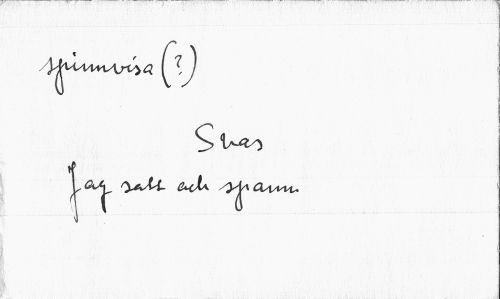 spinnvisa (?)
Svas
Jag satt och spann